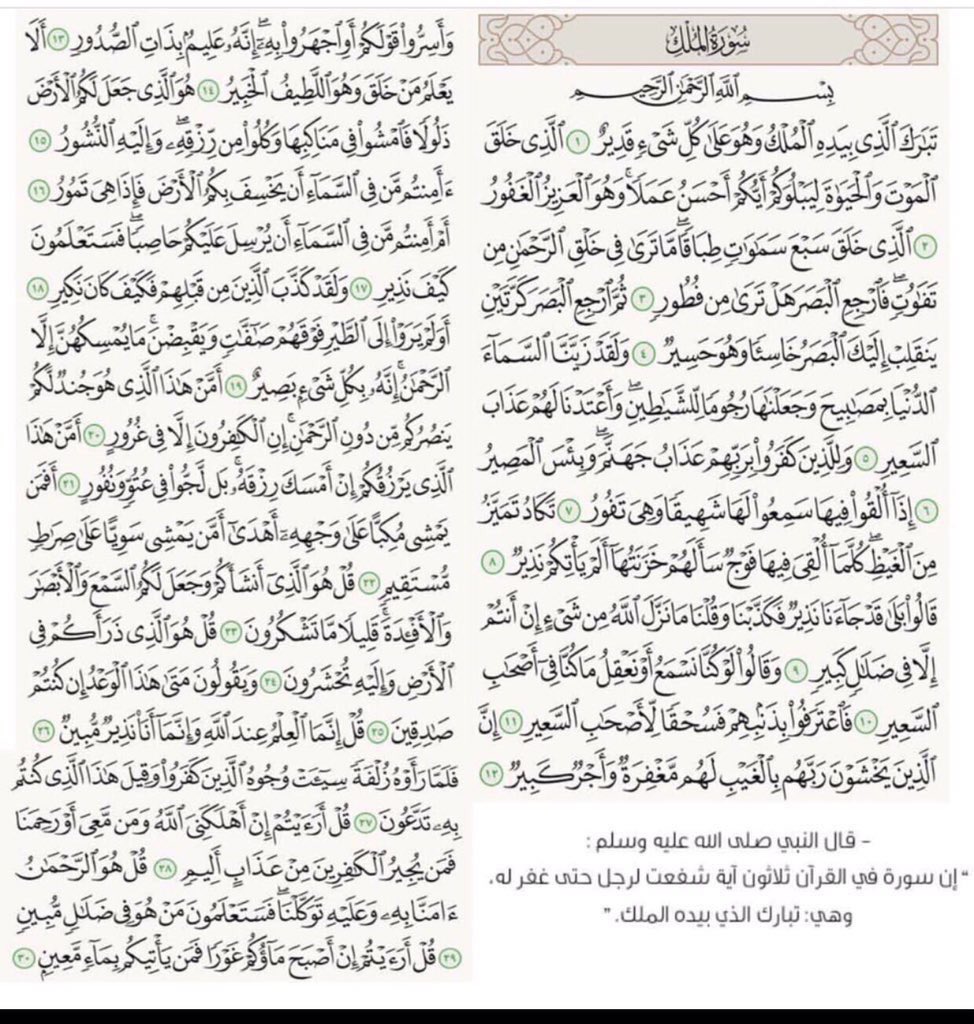 سُورَةُ المُلْكِ
بِسْمِ اللَّهِ الرَّحْمَٰنِ الرَّحِيمِ
تَبَارَكَ الَّذِي بِيَدِهِ الْمُلْكُ وَهُوَ عَلَىٰ كُلِّ شَيْءٍ قَدِيرٌ ١ الَّذِي خَلَقَ
الْمَوْتَ وَالْحَيَوٰةَ لِيَبْلُوَكُمْ أَيُّكُمْ أَحْسَنُ عَمَلًا ۚ وَهُوَ الْعَزِيزُ الْغَفُورُ
٢ الَّذِي خَلَقَ سَبْعَ سَمَٰوَٰتٍ طِبَاقًا ۖ مَّا تَرَىٰ فِي خَلْقِ الرَّحْمَٰنِ مِن
تَفَٰوُتٍ ۖ فَارْجِعِ الْبَصَرَ هَلْ تَرَىٰ مِن فُطُورٍ ٣ ثُمَّ ارْجِعِ الْبَصَرَ كَرَّتَيْنِ
يَنقَلِبْ إِلَيْكَ الْبَصَرُ خَاسِئًا وَهُوَ حَسِيرٌ ٤ وَلَقَدْ زَيَّنَّا السَّمَآءَ
الدُّنْيَا بِمَصَٰبِيحَ وَجَعَلْنَٰهَا رُجُومًا لِّلشَّيَٰطِينِ ۖ وَأَعْتَدْنَا لَهُمْ عَذَابَ
السَّعِيرِ ٥ وَلِلَّذِينَ كَفَرُوا۟ بِرَبِّهِمْ عَذَابُ جَهَنَّمَ ۖ وَبِئْسَ الْمَصِيرُ
٦ إِذَآ أُلْقُوا۟ فِيهَا سَمِعُوا۟ لَهَا شَهِيقًا وَهِيَ تَفُورُ ٧ تَكَادُ تَمَيَّزُ
مِنَ الْغَيْظِ ۖ كُلَّمَآ أُلْقِيَ فِيهَا فَوْجٌ سَأَلَهُمْ خَزَنَتُهَآ أَلَمْ يَأْتِكُمْ نَذِيرٌ ٨
قَالُوا۟ بَلَىٰ قَدْ جَآءَنَا نَذِيرٌ فَكَذَّبْنَا وَقُلْنَا مَا نَزَّلَ اللَّهُ مِن شَيْءٍ إِنْ أَنتُمْ
إِلَّا فِي ضَلَٰلٍ كَبِيرٍ ٩ وَقَالُوا۟ لَوْ كُنَّا نَسْمَعُ أَوْ نَعْقِلُ مَا كُنَّا فِيٓ أَصْحَٰبِ
السَّعِيرِ ١٠ فَاعْتَرَفُوا۟ بِذَنۢبِهِمْ فَسُحْقًا لِّأَصْحَٰبِ السَّعِيرِ ١١ إِنَّ
الَّذِينَ يَخْشَوْنَ رَبَّهُم بِالْغَيْبِ لَهُم مَّغْفِرَةٌ وَأَجْرٌ كَبِيرٌ ١٢
– قال النبي صلى الله عليه وسلم :
“ إن سورة في القرآن ثلاثون آية شفعت لرجل حتى غفر له،
وهي: تبارك الذي بيده الملك. ”
وَأَسِرُّوا۟ قَوْلَكُمْ أَوِ اجْهَرُوا۟ بِهِۦٓ ۖ إِنَّهُۥ عَلِيمٌۢ بِذَاتِ الصُّدُورِ ١٣ أَلَا
يَعْلَمُ مَنْ خَلَقَ وَهُوَ اللَّطِيفُ الْخَبِيرُ ١٤ هُوَ الَّذِي جَعَلَ لَكُمُ الْأَرْضَ
ذَلُولًا فَامْشُوا۟ فِي مَنَاكِبِهَا وَكُلُوا۟ مِن رِّزْقِهِۦ ۖ وَإِلَيْهِ النُّشُورُ ١٥
ءَأَمِنتُم مَّن فِي السَّمَآءِ أَن يَخْسِفَ بِكُمُ الْأَرْضَ فَإِذَا هِيَ تَمُورُ ١٦
أَمْ أَمِنتُم مَّن فِي السَّمَآءِ أَن يُرْسِلَ عَلَيْكُمْ حَاصِبًا ۖ فَسَتَعْلَمُونَ
كَيْفَ نَذِيرِ ١٧ وَلَقَدْ كَذَّبَ الَّذِينَ مِن قَبْلِهِمْ فَكَيْفَ كَانَ نَكِيرِ ١٨
أَوَلَمْ يَرَوْا۟ إِلَى الطَّيْرِ فَوْقَهُمْ صَٰٓفَّٰتٍ وَيَقْبِضْنَ ۚ مَا يُمْسِكُهُنَّ إِلَّا
الرَّحْمَٰنُ ۚ إِنَّهُۥ بِكُلِّ شَيْءٍۭ بَصِيرٌ ١٩ أَمَّنْ هَٰذَا الَّذِي هُوَ جُندٌ لَّكُمْ
يَنصُرُكُم مِّن دُونِ الرَّحْمَٰنِ ۚ إِنِ الْكَٰفِرُونَ إِلَّا فِي غُرُورٍ ٢٠ أَمَّنْ هَٰذَا
الَّذِي يَرْزُقُكُمْ إِنْ أَمْسَكَ رِزْقَهُۥ ۚ بَل لَّجُّوا۟ فِي عُتُوٍّ وَنُفُورٍ ٢١ أَفَمَن
يَمْشِي مُكِبًّا عَلَىٰ وَجْهِهِۦٓ أَهْدَىٰٓ أَمَّن يَمْشِي سَوِيًّا عَلَىٰ صِرَٰطٍ
مُّسْتَقِيمٍ ٢٢ قُلْ هُوَ الَّذِيٓ أَنشَأَكُمْ وَجَعَلَ لَكُمُ السَّمْعَ وَالْأَبْصَٰرَ
وَالْأَفْـِٔدَةَ ۖ قَلِيلًا مَّا تَشْكُرُونَ ٢٣ قُلْ هُوَ الَّذِي ذَرَأَكُمْ فِي
الْأَرْضِ وَإِلَيْهِ تُحْشَرُونَ ٢٤ وَيَقُولُونَ مَتَىٰ هَٰذَا الْوَعْدُ إِن كُنتُمْ
صَٰدِقِينَ ٢٥ قُلْ إِنَّمَا الْعِلْمُ عِندَ اللَّهِ وَإِنَّمَآ أَنَا۠ نَذِيرٌ مُّبِينٌ ٢٦
فَلَمَّا رَأَوْهُ زُلْفَةً سِيٓـَٔتْ وُجُوهُ الَّذِينَ كَفَرُوا۟ وَقِيلَ هَٰذَا الَّذِي كُنتُم
بِهِۦ تَدَّعُونَ ٢٧ قُلْ أَرَءَيْتُمْ إِنْ أَهْلَكَنِيَ اللَّهُ وَمَن مَّعِيَ أَوْ رَحِمَنَا
فَمَن يُجِيرُ الْكَٰفِرِينَ مِنْ عَذَابٍ أَلِيمٍ ٢٨ قُلْ هُوَ الرَّحْمَٰنُ
ءَامَنَّا بِهِۦ وَعَلَيْهِ تَوَكَّلْنَا ۖ فَسَتَعْلَمُونَ مَنْ هُوَ فِي ضَلَٰلٍ مُّبِينٍ
٢٩ قُلْ أَرَءَيْتُمْ إِنْ أَصْبَحَ مَآؤُكُمْ غَوْرًا فَمَن يَأْتِيكُم بِمَآءٍ مَّعِينٍۭ ٣٠